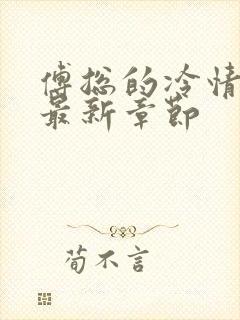 傅总的冷情
最新章节
荀不言